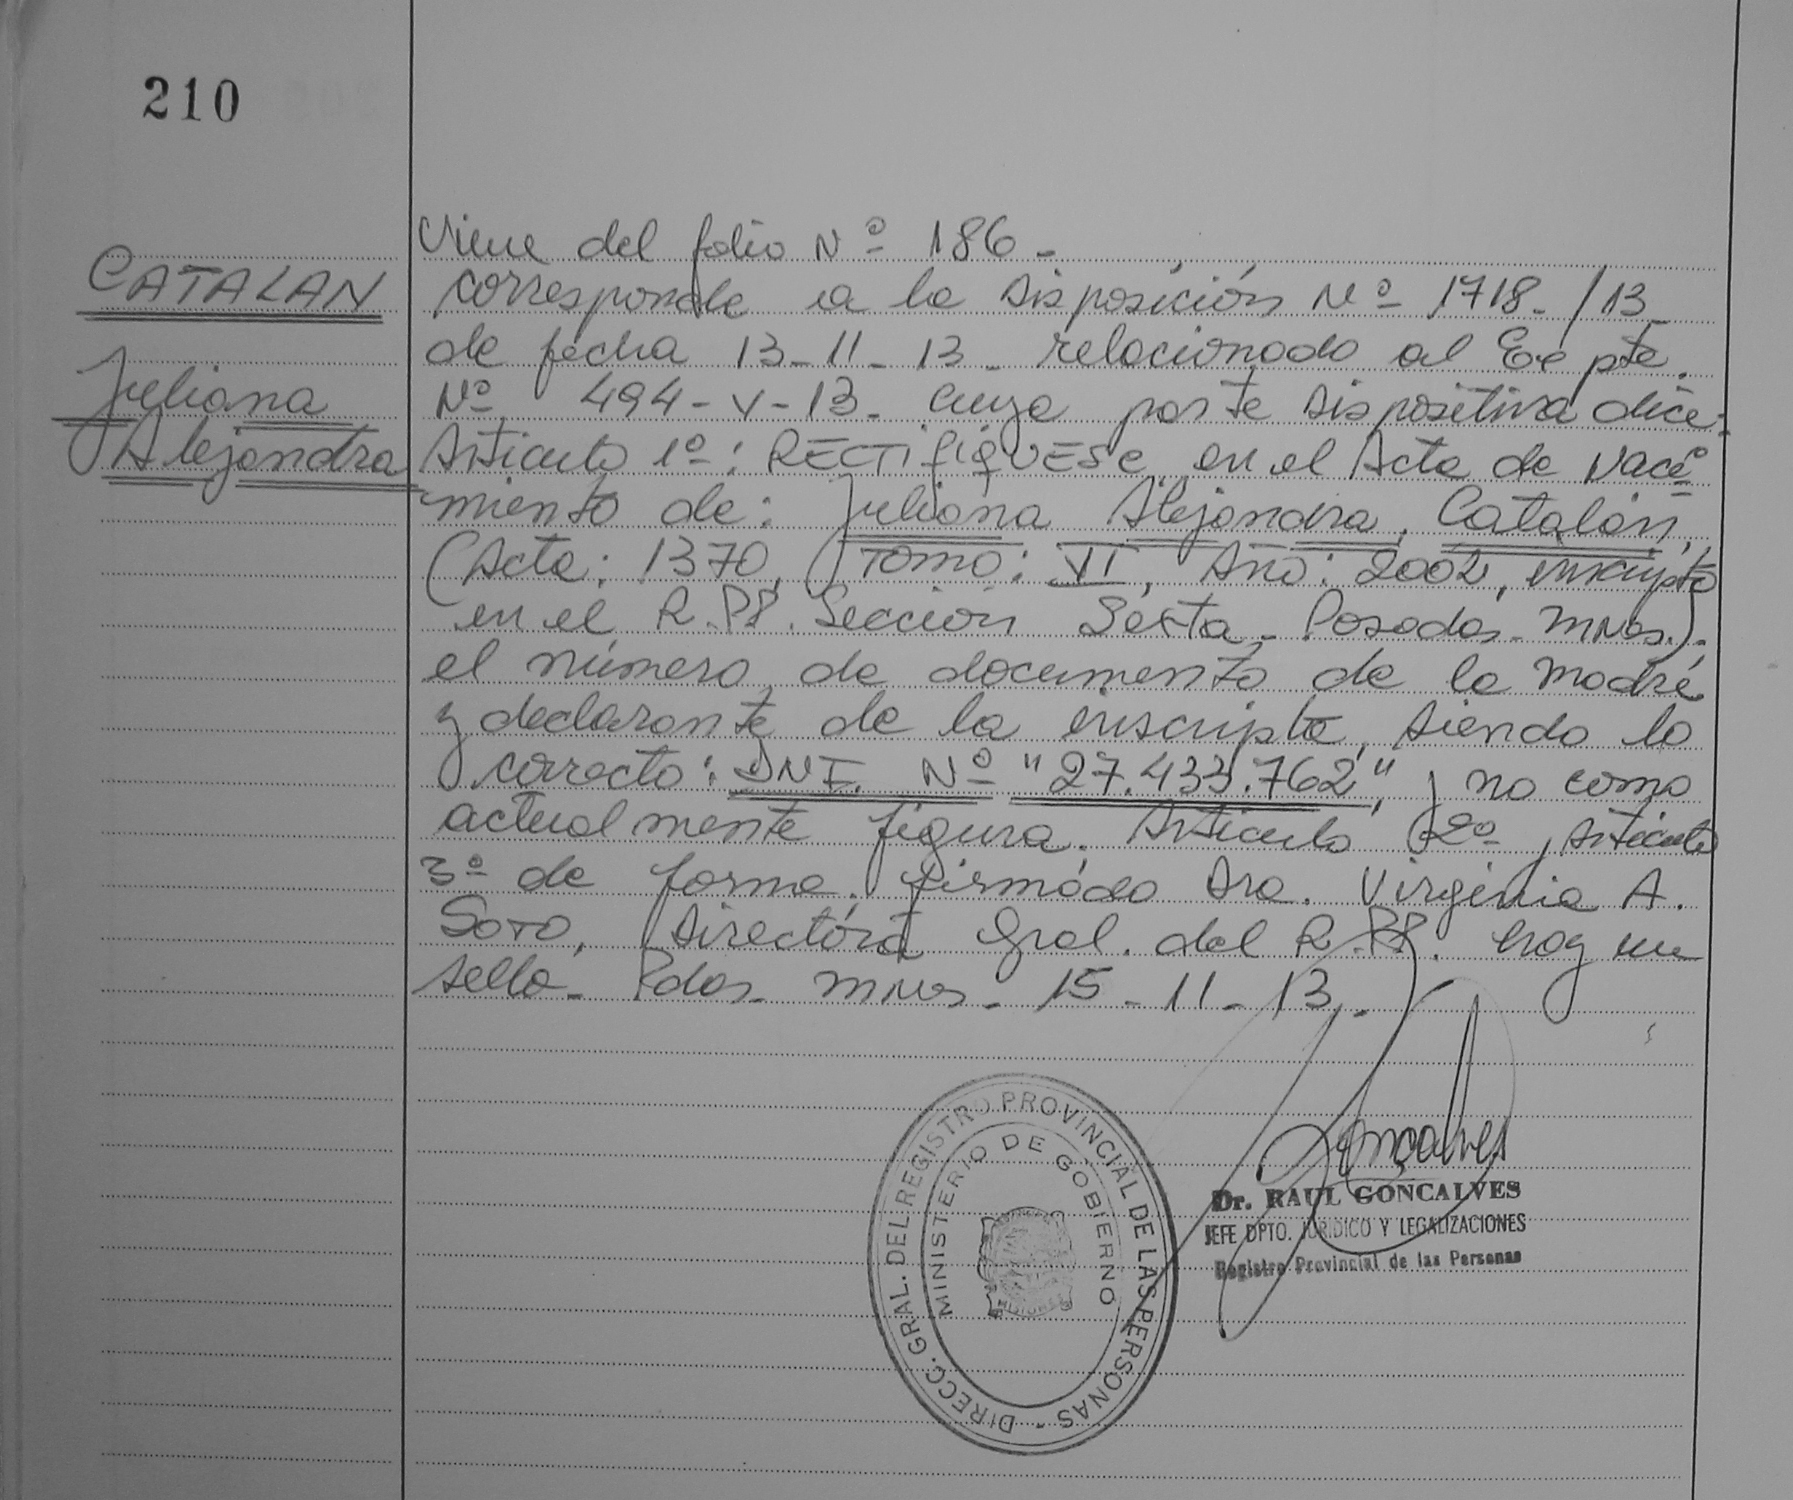 210
CATALAN
Juliana
Alejandra
Viene del folio Nº 186.-
corresponde a la Disposición Nº 1718-/13
de fecha 13-11-13 relacionado al Expte.
Nº 494-V-13- cuya parte dispositiva dice:
Artículo 1º: RECTIFIQUESE en el Acta de Naci=
miento de: Juliana Alejandra Catalán,
(Acta: 1370, Tomo: VI, Año: 2002, inscripto
en el R.PP. Sección Sexta- Posadas- Mnes.)-
el número de documento de la madre
y declarante de la inscripta, siendo lo
correcto: DNI. Nº "27.433.762", y no como
actualmente figura. Artículo 2º y Artículo
3º de forma. Firmado Dra. Virginia A.
Soto, Directora Gral. del R.PP. hay un
sello- Pdas- Mnes- 15-11-13.-
DIRECC. GRAL. DEL REGISTRO PROVINCIAL DE LAS PERSONAS -
MINISTERIO DE GOBIERNO
MISIONES
Goncalves
Dr. RAUL GONCALVES
JEFE DPTO. JURIDICO Y LEGALIZACIONES
Registro Provincial de las Personas